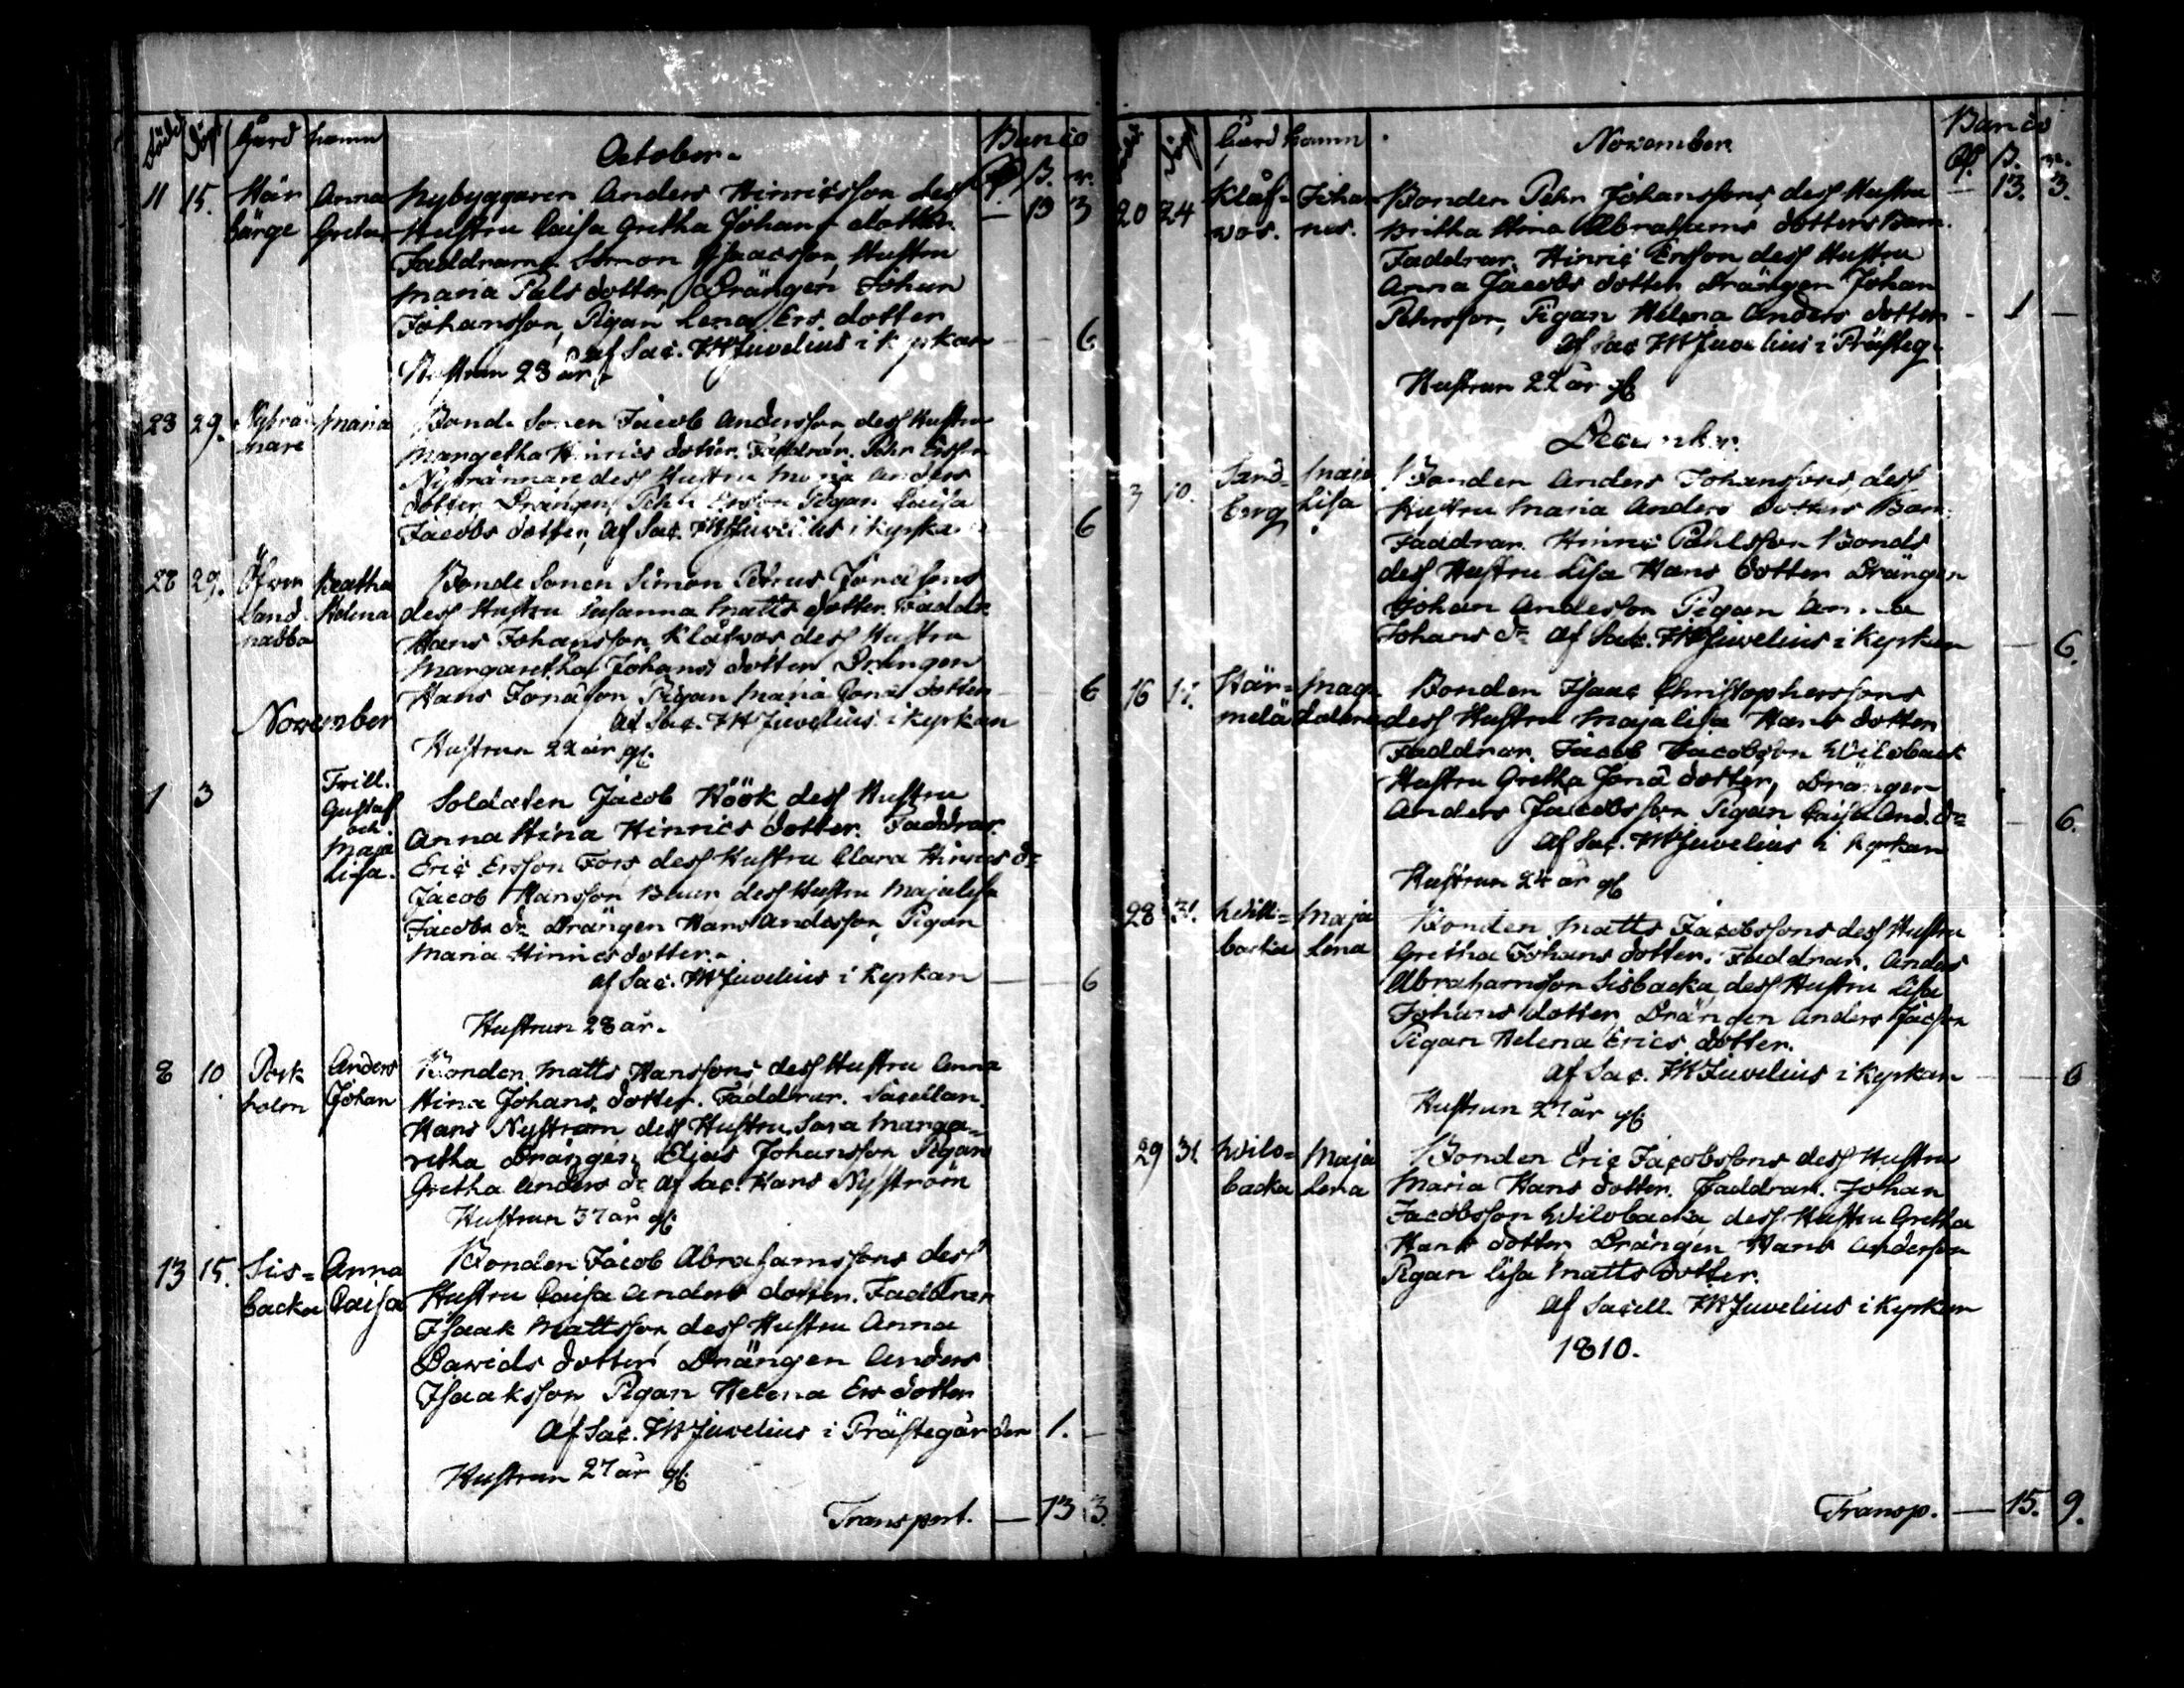 Född Döpt Gård hamn October. Banco
B. r.
11 15. Här Anna Nybyggaren Anders Hinricsson dess — 13 3
bärge Greta Hustru Caisa Gretha Johans dotter.
Faddrarne Simon Isaacsson, Hustru
Maria Pals dotter, Drängen Johan
Johansson, Pigan Lena Ers. dotter
af Sac. JWJuvelius i Kyrkan — 6
Hustrun 23 år
23 29. Nybrä Maria Bonde Sonen Jacob Andersson dess Hustru
nare Margetha Hinrics dotter. Faddrar. Pehr Ersson
Nybrännare dess Hustru Maria Anders
dotter, Drängen Pehr Ersson Pigan Caisa
Jacobs dotter, af Sac. JWJuvelius i Kyrka 6
28 29. Öfwer Beatha Bonde Sonen Simon Petrus Jonæsons
Sand Helena dess Hustru Susanna Matts dotter. Faddr.
nasba Hans Johansson, Klåfwos dess Hustru
Margaretha Johans dotter Drängen
Hans Jonæson Pigan Maria Jonæ dotter 6
November af Sac. JWJuvelius i Kyrkan
Hustrun 22 år gl.
1 3 Trill. Soldaten Jacob Höök dess Hustru
Gustaf
och Anna Stina Hinrics dotter. Faddrar.
Maja Eric Ersson Fors dess Hustru Clara Hinrics dr
Lisa. Jacob Hansson Buur dess Hustru Majalisa
Jacobs dr Drängen Hans Andersson, Pigan
Maria Hinrics dotter.
af Sac. JWJuvelius i Kyrkan — 6
Hustrun 28 år.
8 10 Anders Bonden Matts Hanssons dess Hustru Anna
holm Johan Stina Johans dotter. Faddrar. Sacellan.
Hans Nyström dess Hustru Sara Marga=
retha Drängen Elias Johansson Pigan
Gretha Anders dr af Sac. Hans Nyström
Hustrun 37 år gl.
13 15. Sis= Anna Bonden Jacob Abrahamssons dess
backa Caisa Hustru Caisa Anders dotter. Faddrar
Isaak Mattsson, dess Hustru Anna
Dawids dotter, Drängen Anders
Isaaksson, Pigan Helena Ers dotter
Af Sac. JWJuvelius i Prästegården 1. —
Hustrun 27 år gl.
Transport. — 13 3.
Döpt Gård hamn November. Banco
B. r.
20 24 Klåf= Johan Bonden Pehr Johanssons, dess Hustru — 13. 3.
wos. nes. Britha Stina Abrahams dotters Barn.
Faddrar. Hinric Ersson dess Hustru
Anna Jacobs dotter Drängen Johan
Pehrsson, Pigan Helena Anders dotter - 1 —
af Sac JWJuvelius i Prästeg.
Hustrun 22 år gl
December.
7 10. Sand= Maja Bonden Anders Johanssons, dess
berg Lisa Hustru Maria Anders dotters Barn.
Faddrar. Hinric Påhlsson Bonds
dess Hustru Lisa Hans dotter Drängen
Johan Andersson Pigan Anna
Johans dr af Sac. JWJuvelius i Kyrkan — 6.
16 17. Här= Mag= Bonden Isaac Christopherssons
melä dalena dess Hustru Maja lisa Hans dotter
Faddrar. Jacob Jacobsson Wiloback
Hustru Gretha Jonæ dotter, Drängen
Anders Jacobsson Pigan Caisa And. dr — 6.
af Sac. JWJuvelius i Kyrkan
Hustrun 24 år gl
28 31. Willi= Maja Bonden Matts Jacobssons dess Hustru
backa Lena Gretha Johans dotter. Faddrar. Anders
Abrahamsson Sisbacka, dess Hustru Lisa
Johans dotter Drängen Anders Jacsson
Pigan Helena Erics dotter.
af Sac. JWJuvelius i Kyrkan — 6
Hustrun 27 år gl.
29 31 Wilo= Maja Bonden Eric Jacobssons dess Hustru
backa Lena Maria Hans dotter. Faddrar. Johan
Jacobsson Wilobacka, dess Hustru Gretha
Hans dotter Drängen Hans Andersson
Pigan Lisa Matts dotter.
af Sacell. JWJuvelius i Kyrkan
1810.
Transp. — 15. 9.